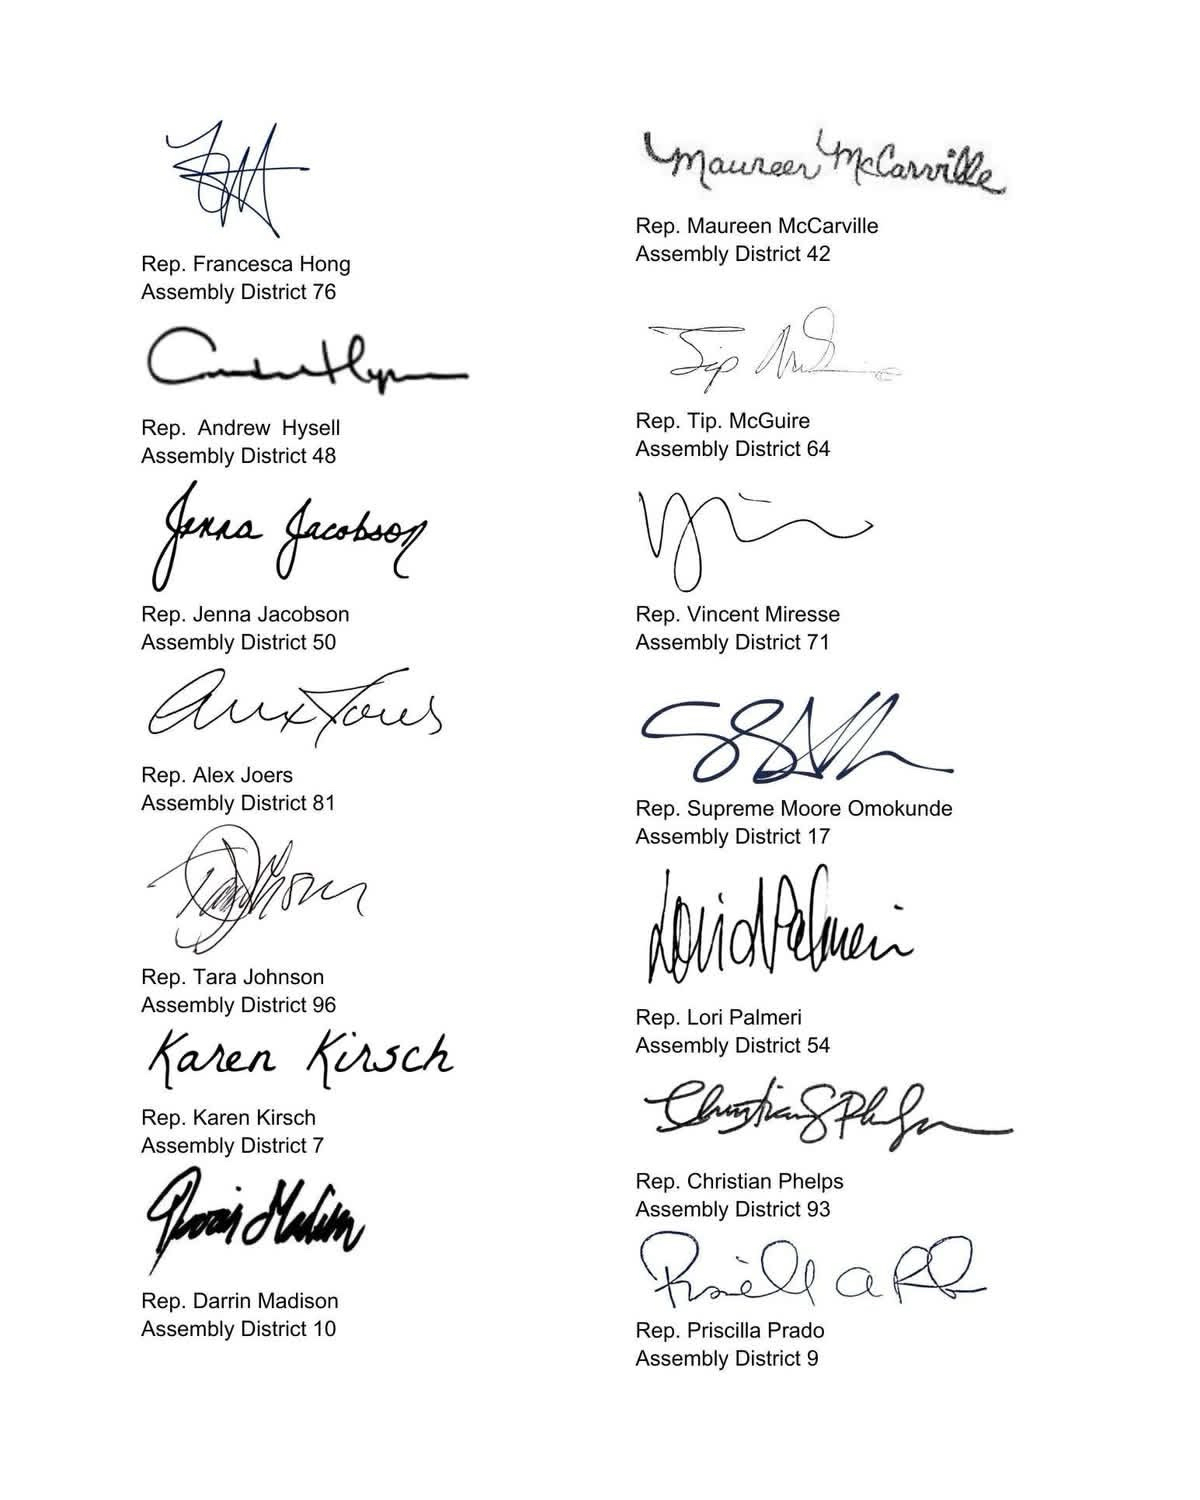 Rep. Francesca Hong
Assembly District 76
Rep. Andrew Hysell
Assembly District 48
Jenna Jacobson
Rep. Jenna Jacobson
Assembly District 50
Rep. Alex Joers
Assembly District 81
Rep. Tara Johnson
Assembly District 96
Karen Kirsch
Rep. Karen Kirsch
Assembly District 7
Darrin Madison
Rep. Darrin Madison
Assembly District 10
Maureen McCarville
Rep. Maureen McCarville
Assembly District 42
Tip
Rep. Tip. McGuire
Assembly District 64
Rep. Vincent Miresse
Assembly District 71
Rep. Supreme Moore Omokunde
Assembly District 17
Palmeri
Rep. Lori Palmeri
Assembly District 54
Rep. Christian Phelps
Assembly District 93
Rep. Priscilla Prado
Assembly District 9